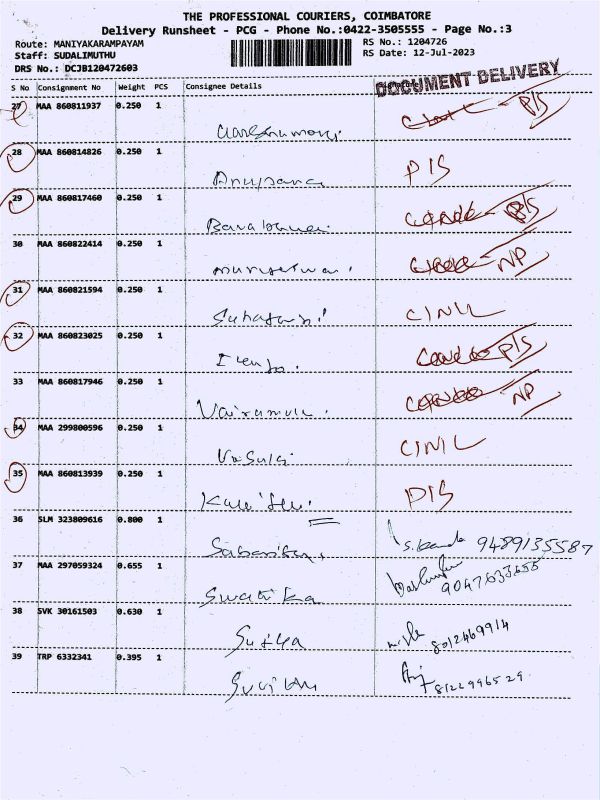 THE PROFESSIONAL COURIERS, COIMBATORE
Delivery Runsheet - PCG - Phone No.:0422-3505555 - Page No.:3
Route: MANIYAKARAMPAYAM RS No.: 1204726
Staff: SUDALIMUTHU RS Date: 12-Jul-2023
DRS No.: DCJB120472603
DOCUMENT DELIVERY
S No Consignment No Weight PCS Consignee Details
27 MAA 860811937 0.250 1
P/S
28 MAA 860814826 0.250 1
Anupama P/S
29 MAA 860817460 0.250 1
P/S
30 MAA 860822414 0.250 1
NP
31 MAA 860821594 0.250 1
C/NIL
32 MAA 860823025 0.250 1
P/S
33 MAA 860817946 0.250 1
Vairamuni NP
34 MAA 299800596 0.250 1
Vasuki C/NIL
35 MAA 860813939 0.250 1
P/S
36 SLM 323809616 0.800 1
9489135587
37 MAA 297059324 0.655 1
Swathika 9047633655
38 SVK 30161503 0.630 1
Suriya 8012469914
39 TRP 6332341 0.395 1
8122996529